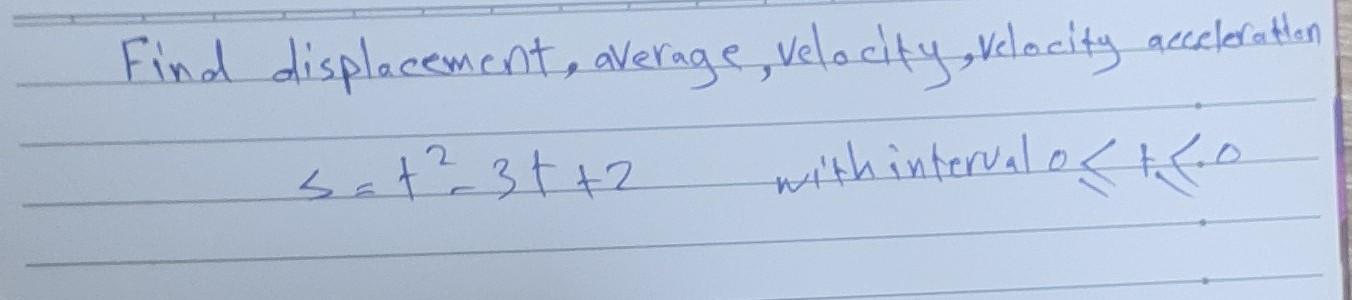 Find displacement, average, velocity, velocity acceleration
s = t² - 3t + 2 with interval 0 ≤ t ≤ 0